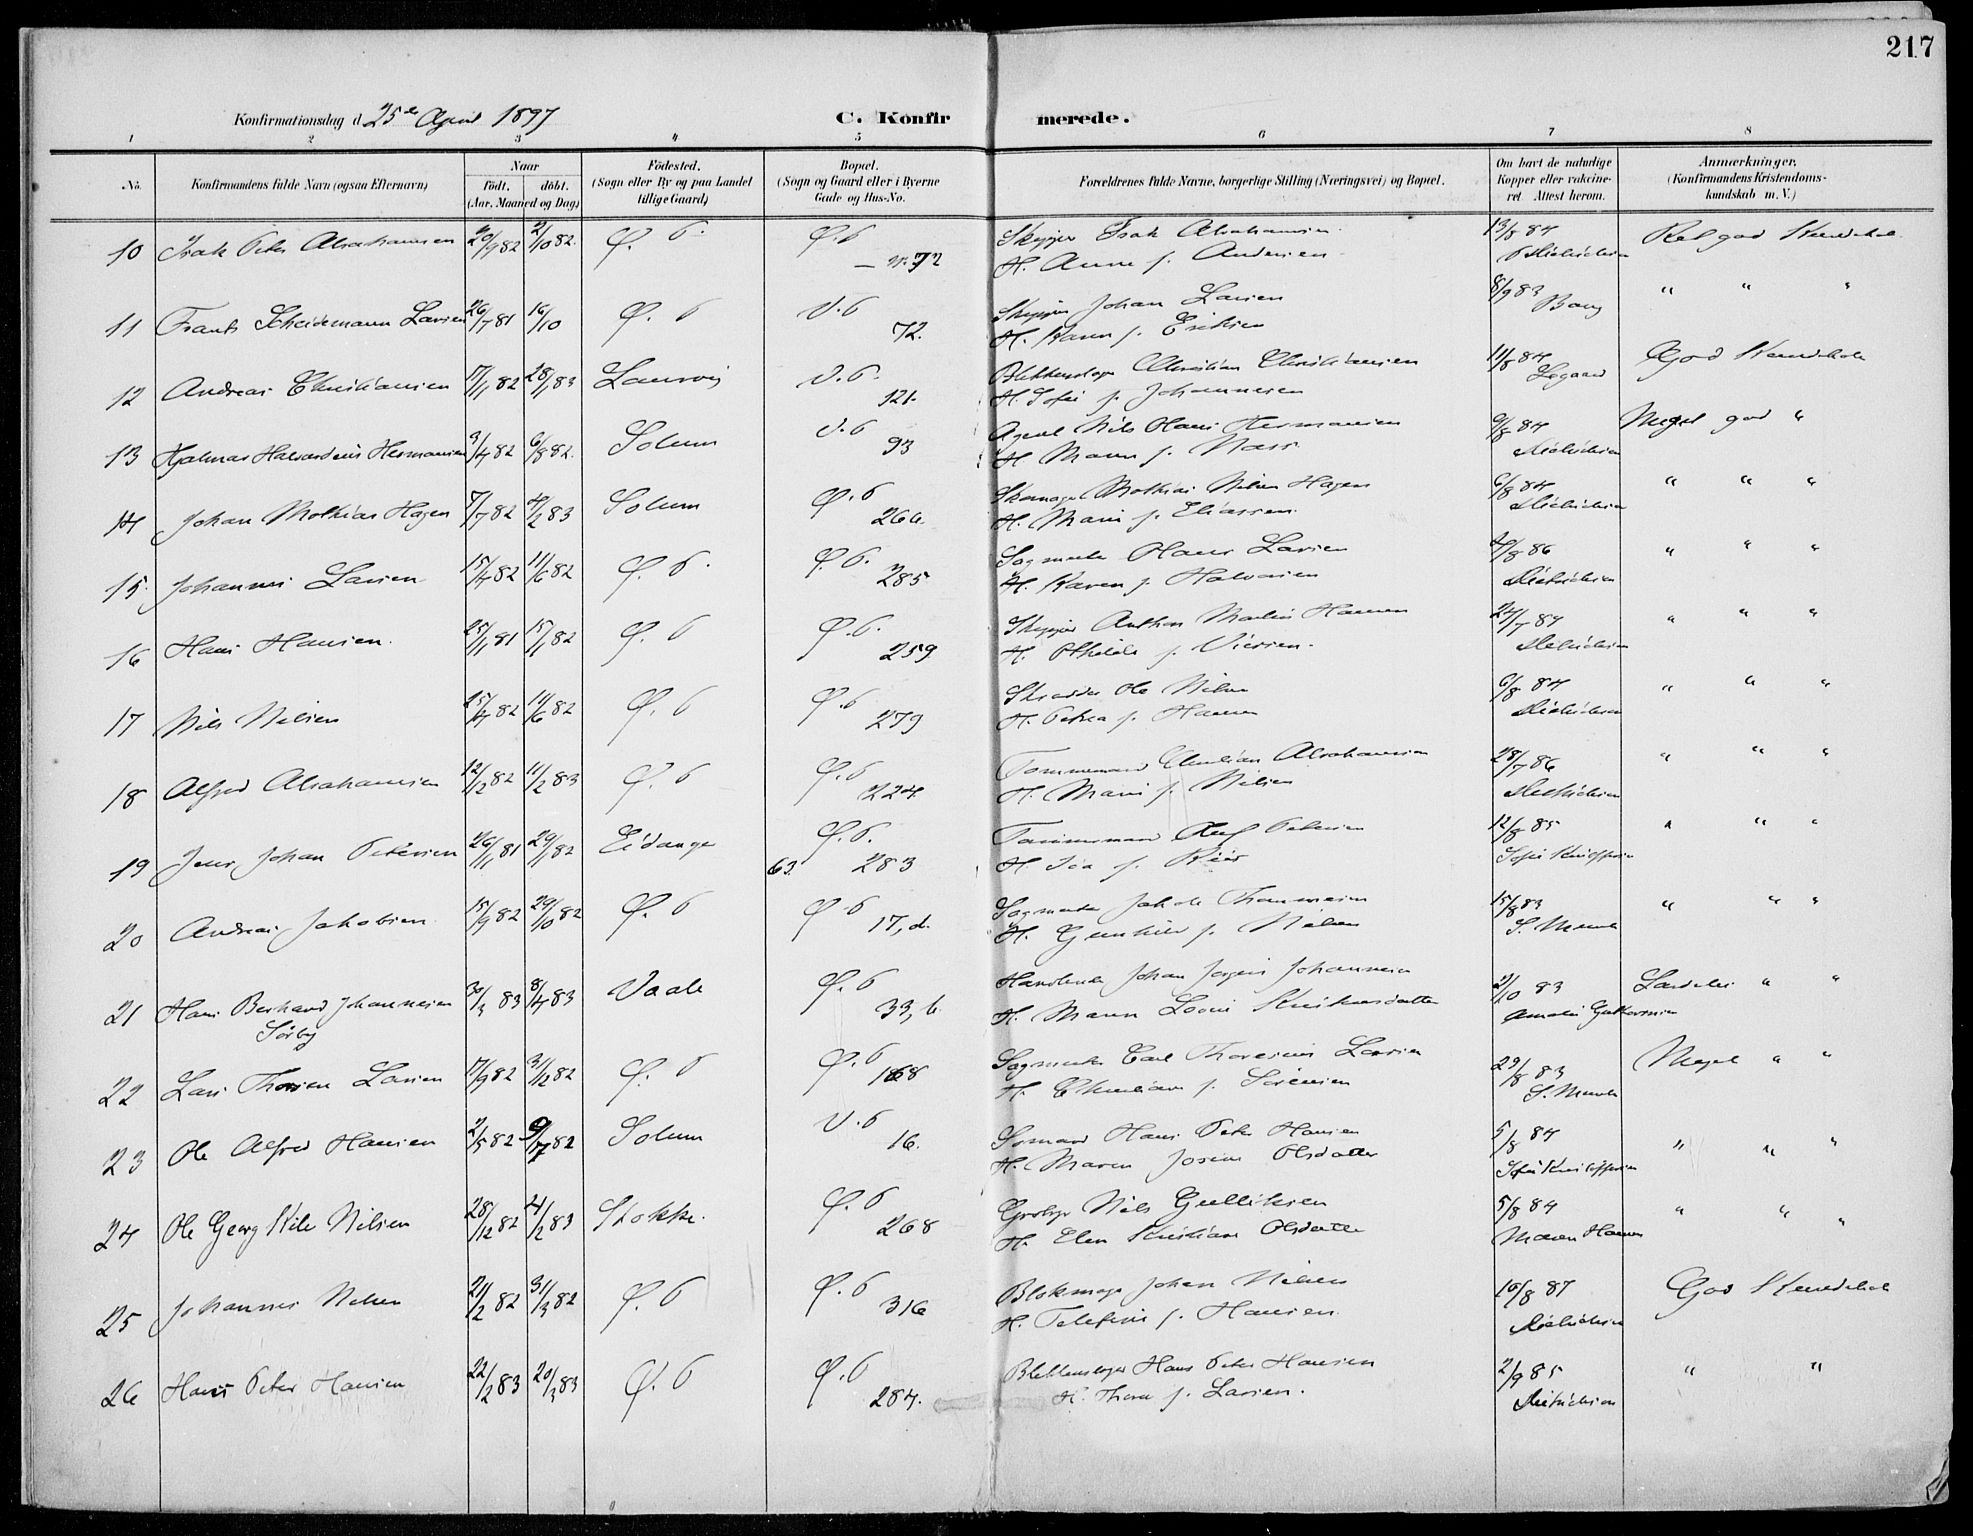 217
Konfirmationsdag d. 25de April 1897
C. Konfirmerede.
1 2 3 4 5 6 7 8
No.
Konfirmandens fulde Navn (ogsaa Efternavn)
Naar
födt. döbt.
(Aar, Maaned og Dag)
Födested.
(Sogn eller By og paa Landet
tillige Gaard)
Bopæl.
(Sogn og Gaard eller i Byerne
Gade og Hus-No.
Forældrenes fulde Navne, borgerlige Stilling (Næringsvei) og Bopæl.
Om havt de naturlige
Kopper eller vakcine-
ret. Attest herom.
Anmærkninger.
(Konfirmandens Kristendoms-
kundskab m. V.)
10 Isak Peter Abrahamsen 20/9 82 2/10 82. Ø. P. Ø. P. Skipper Isak Abrahamsen 13/8 84 Rel god Kundskab
72 H. Anne f. Andersen Dietrichsen
11 Frants Scheidemann Larsen 26/7 81 16/10 Ø. P V. P Skipper Johan Larsen 8/9 83 " " "
72. H. Karen f. Eriksen Bang
12 Andreas Christiansen 17/1 82 28/1 83 Laurvig V. P. Blikkenslager Christian Christiansen 11/8 84 God Kundskab
121. H. Sofie f. Johannesen
13 Hjalmar Halvardius Hermansen 9/4 82 6/8 82. Solum V. P Agent Nils Hans Hermansen 9/8 84 Meget god "
93 H. Maren f. Dietrichsen
14 Johan Mathias Hagen 7/7 82 4/2 83 Solum Ø. P Skomager Mathias Nilsen Hagen 6/8 84 " " "
266 H. Marie f. Eliassen Dietrichsen
15. Johannes Larsen 15/4 82 11/6 82 Ø. P. Ø. P. Sagmester Hans Larsen 4/8 86 " " "
285 H. Karen f. Halvorsen Dietrichsen
16 Hans Hansen. 25/1 81 15/1 82 Ø. P Ø. P. Skipper Anthon Martin Hansen 24/7 84 " " "
259 H. Othilde f. Dietrichsen
17 Nils Nilsen 25/4 82 11/6 82 Ø. P Ø. P Skrædder Ole Nilsen 6/8 84 " " "
279 H. Petrea f. Hansen Dietrichsen
18 Alfred Abrahamsen 12/12 82 11/2 83 Ø. P Ø. P Tømmermand Christian Abrahamsen 28/7 86 " " "
224. H. Marie f. Nilsen Dietrichsen
19 Jens Johan Petersen 26/1 81 29/1 82 Eidanger Ø. P. Tømmermand Petersen 12/8 85 " " "
63. 283 H. Ida f.
20 Andreas Jakobsen 15/9 82 29/10 82 Ø. P Ø P Sagmester Jakob Thommesen 15/8 83 " " "
17, d. H. Gunhild f. Nilsen S. Munch
21 Hans Berhard Johannesen 30/3 83 8/4 83 Vaale Ø. P Handlende Johan Jørgen Johannesen 2/10 83 "
Sørby 33, b. H. Maren Lovise Kristensdatter
22 Lars Thorsen Larsen 17/9 82 31/12 82 Ø. P Ø. P Sagmester Carl Thoresius Larsen 29/8 83 Meget " "
168 H. Christiane f. Sørensen S. Munch
23 Ole Alfred Hansen 2/5 82 9/7 82 Solum V. P Sømand Hans Peter Hansen 5/8 84 " " "
16. H. Maren Josine Olsdatter
24 Ole Georg Kile Nilsen 28/12 82 4/2 83 Stokke. Ø. P Nils Gulliksen 5/8 84 " " "
268 H. Elen Kristiane Olsdatter Maren Hansen
25 Johannes Nilsen 21/2 82 31/3 82 Ø. P Ø. P Blokmager Johan Nilsen 10/8 87 God Kundskab
316 H. Telefine f. Hansen. Dietrichsen
26 Hans Peter Hansen 22/2 83 20/3 83 Ø. P Ø. P Blikkenslager Hans Peter Hansen 2/9 85 " "
284. H. Thora f. Larsen. Dietrichsen